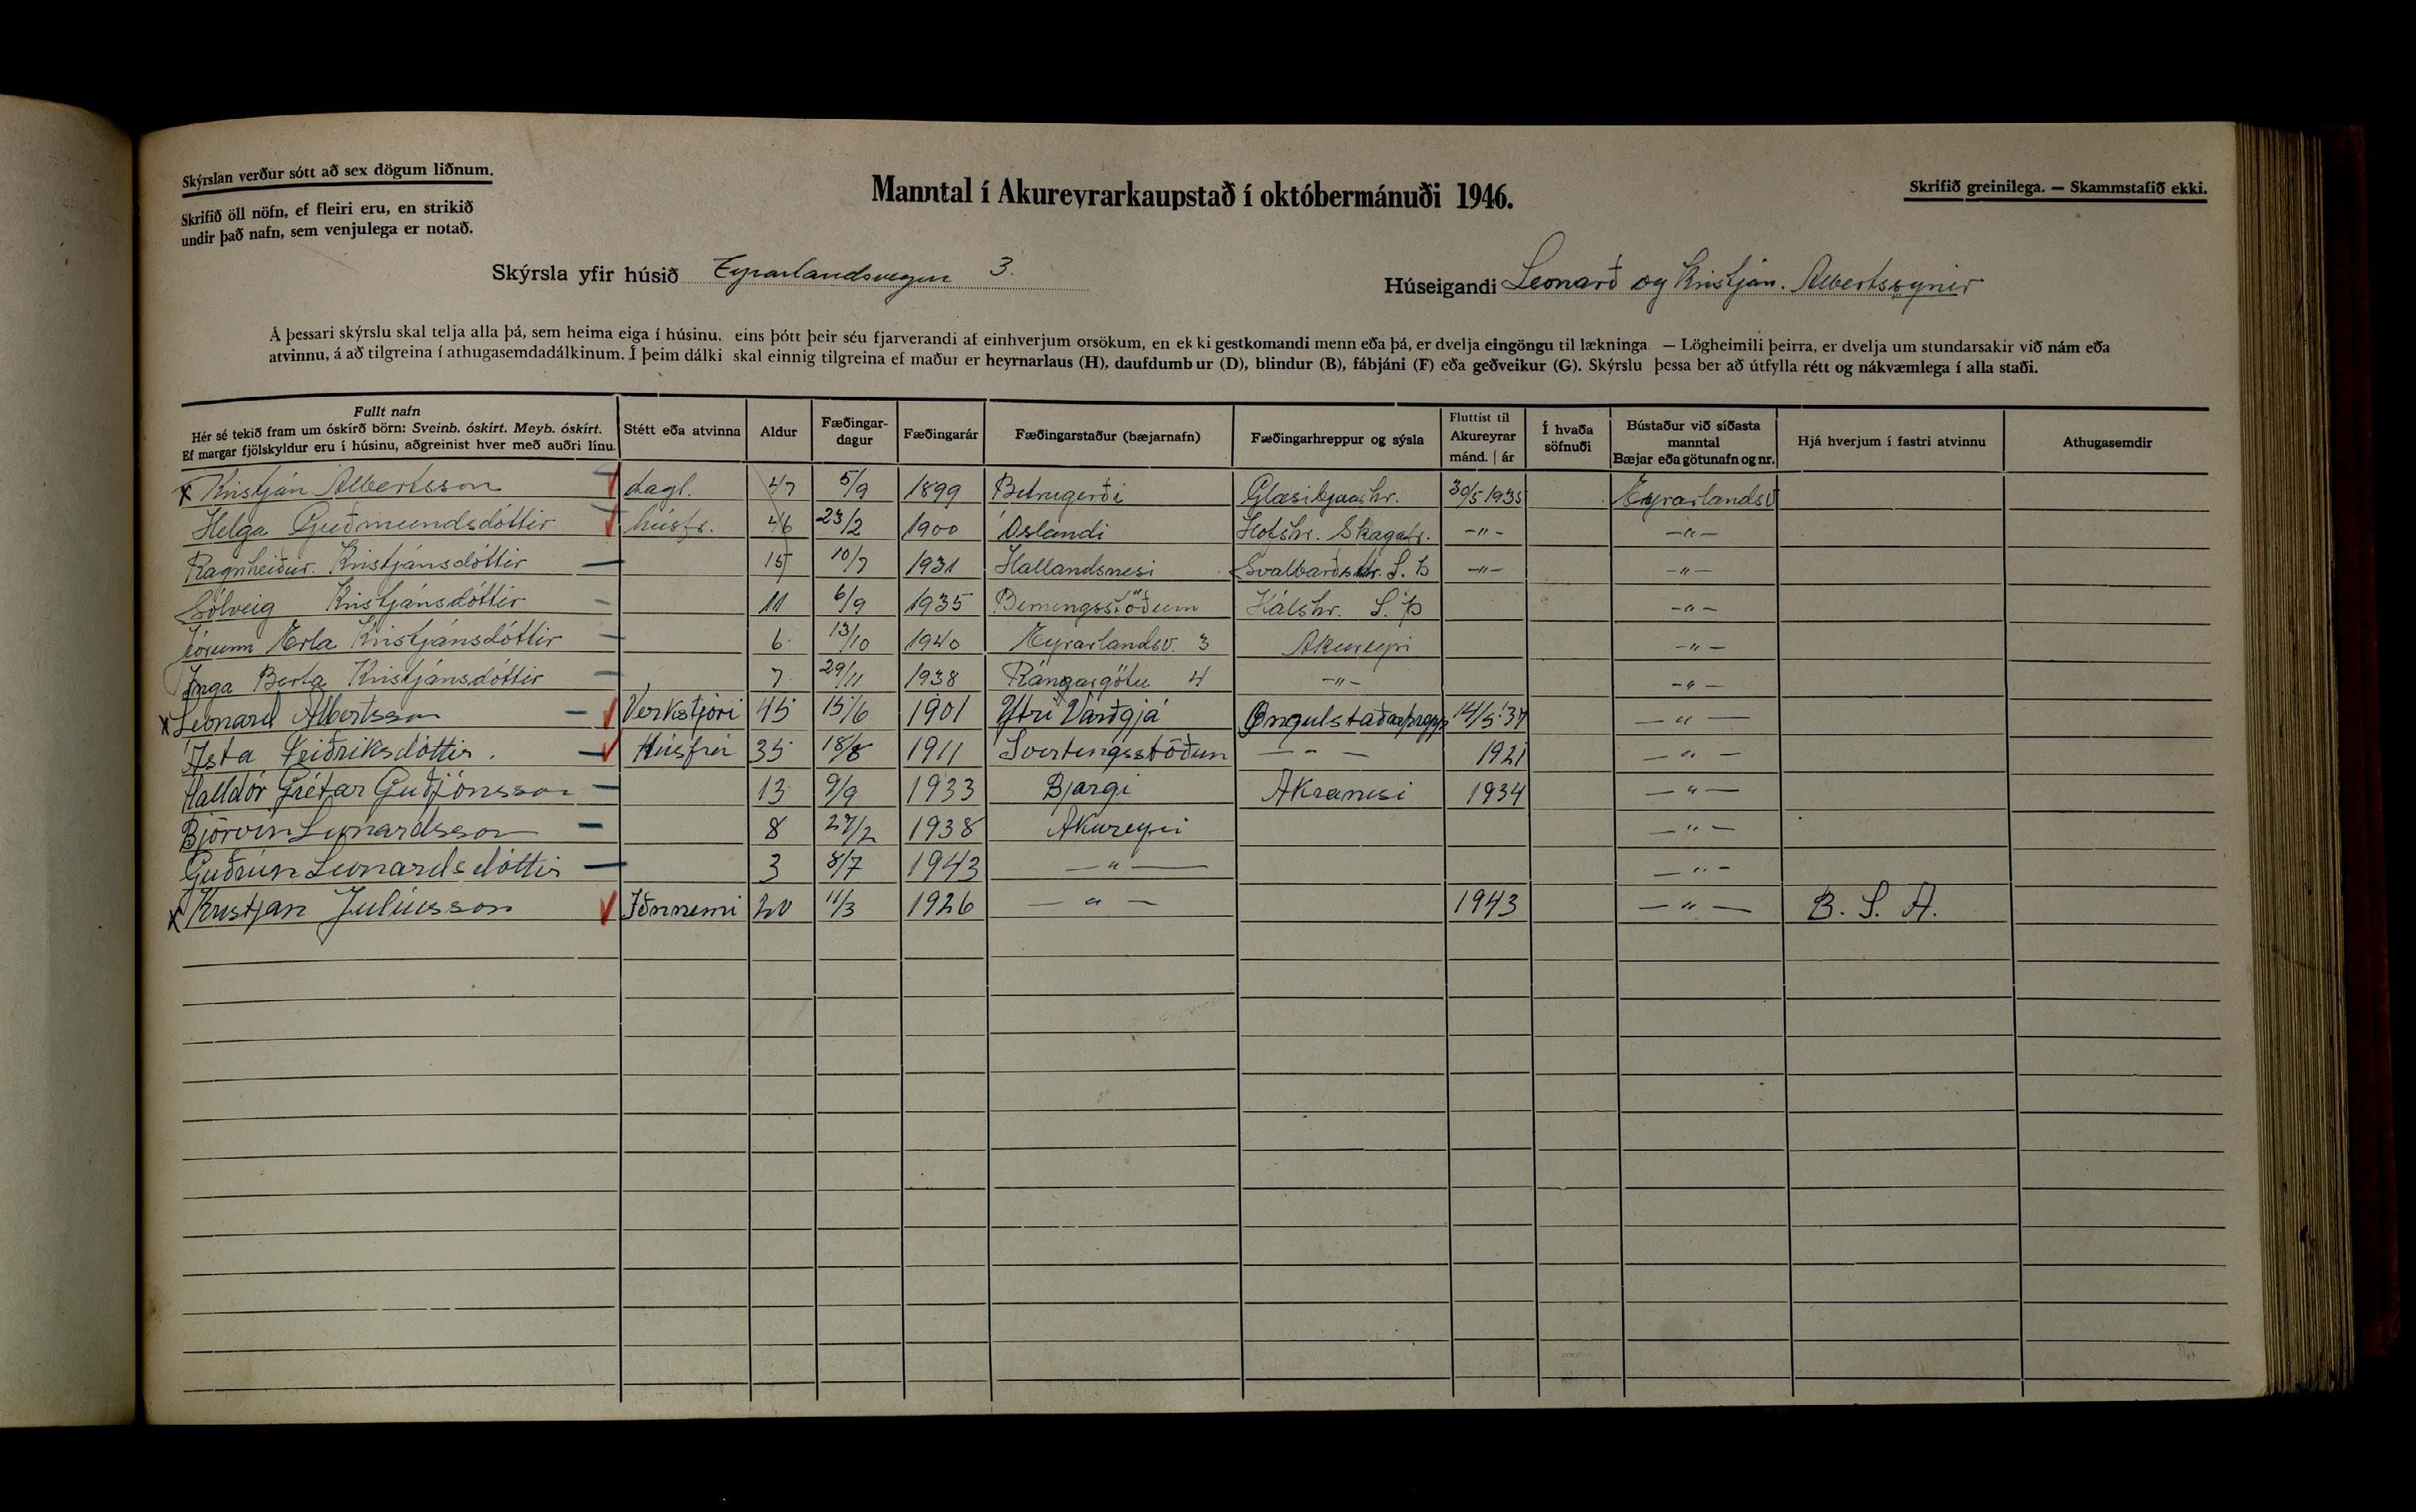 Skýrslan verður sótt að sex dögum liðnum.
Skrifið öll nöfn, ef fleiri eru, en strikið
undir það nafn, sem venjulega er notað.
Manntal í Akureyrarkaupstað í októbermánuði 1946.
Skrifið greinilega. — Skammstafið ekki.
Skýrsla yfir húsið Eyrarlandsvegur 3.
Húseigandi Leonarð og Kristján. Albertssynir
Á þessari skýrslu skal telja alla þá, sem heima eiga í húsinu, eins þótt þeir séu fjarverandi af einhverjum orsökum, en ekki gestkomandi menn eða þá, er dvelja eingöngu til lækninga. — Lögheimili þeirra, er dvelja um stundarsakir við nám eða
atvinnu, á að tilgreina í athugasemdadálkinum. Í þeim dálki skal einnig tilgreina ef maður er heyrnarlaus (H), daufdumbur (D), blindur (B), fábjáni (F) eða geðveikur (G). Skýrslu þessa ber að útfylla rétt og nákvæmlega í alla staði.
Fullt nafn
Hér sé tekið fram um óskírð börn: Sveinb. óskírt. Meyb. óskírt.
Ef margar fjölskyldur eru í húsinu, aðgreinist hver með auðri línu.
Stétt eða atvinna
Aldur
Fæðingar-
dagur
Fæðingarár
Fæðingarstaður (bæjarnafn)
Fæðingarhreppur og sýsla
Fluttist til
Akureyrar
mánd. | ár
Í hvaða
söfnuði
Bústaður við síðasta
manntal
Bæjar eða götunafn og nr.
Hjá hverjum í fastri atvinnu
Athugasemdir
x Kristján Albertsson dagl. 47 5/9 1899 Glæsibæjarhr. 30/5 1935 Eyrarlandsv
Helga Guðmundsdóttir húsfr. 46 23/2 1900 Óslandi Hofshr. Skagafr. -"- -"-
Ragnheiður. Kristjánsdóttir 15 10/7 1931 Hallandsnesi Svalbarðsstr. S. Þ -"- -"-
Sólveig Kristjánsdóttir 11 6/9 1935 Hálshr. S. Þ -"-
Jórunn Erla Kristjánsdóttir 6 13/10 1940 Eyrarlandsv. 3 Akureyri -"-
Inga Berta Kristjánsdóttir 7 29/11 1938 Ránargötu 4 -"- -"-
x Leonard Albertsson Verkstjóri 45 15/6 1901 Ytri Varðgjá 14/5 '37 -"-
Ásta Friðriksdóttir. Húsfrú 35 18/8 1911 Svertingsstöðum -"- 1921 -"-
Halldór Grétar Guðjónsson 13 9/9 1933 Bjargi Akranesi 1934 -"-
Björvin Leonardsson 8 27/2 1938 Akureyri -"-
Guðrún Leonardsdóttir 3 8/7 1943 -"- -"-
x Kristján Júlíusson Iðnnemi 20 11/3 1926 -"- 1943 -"- B. S. A.